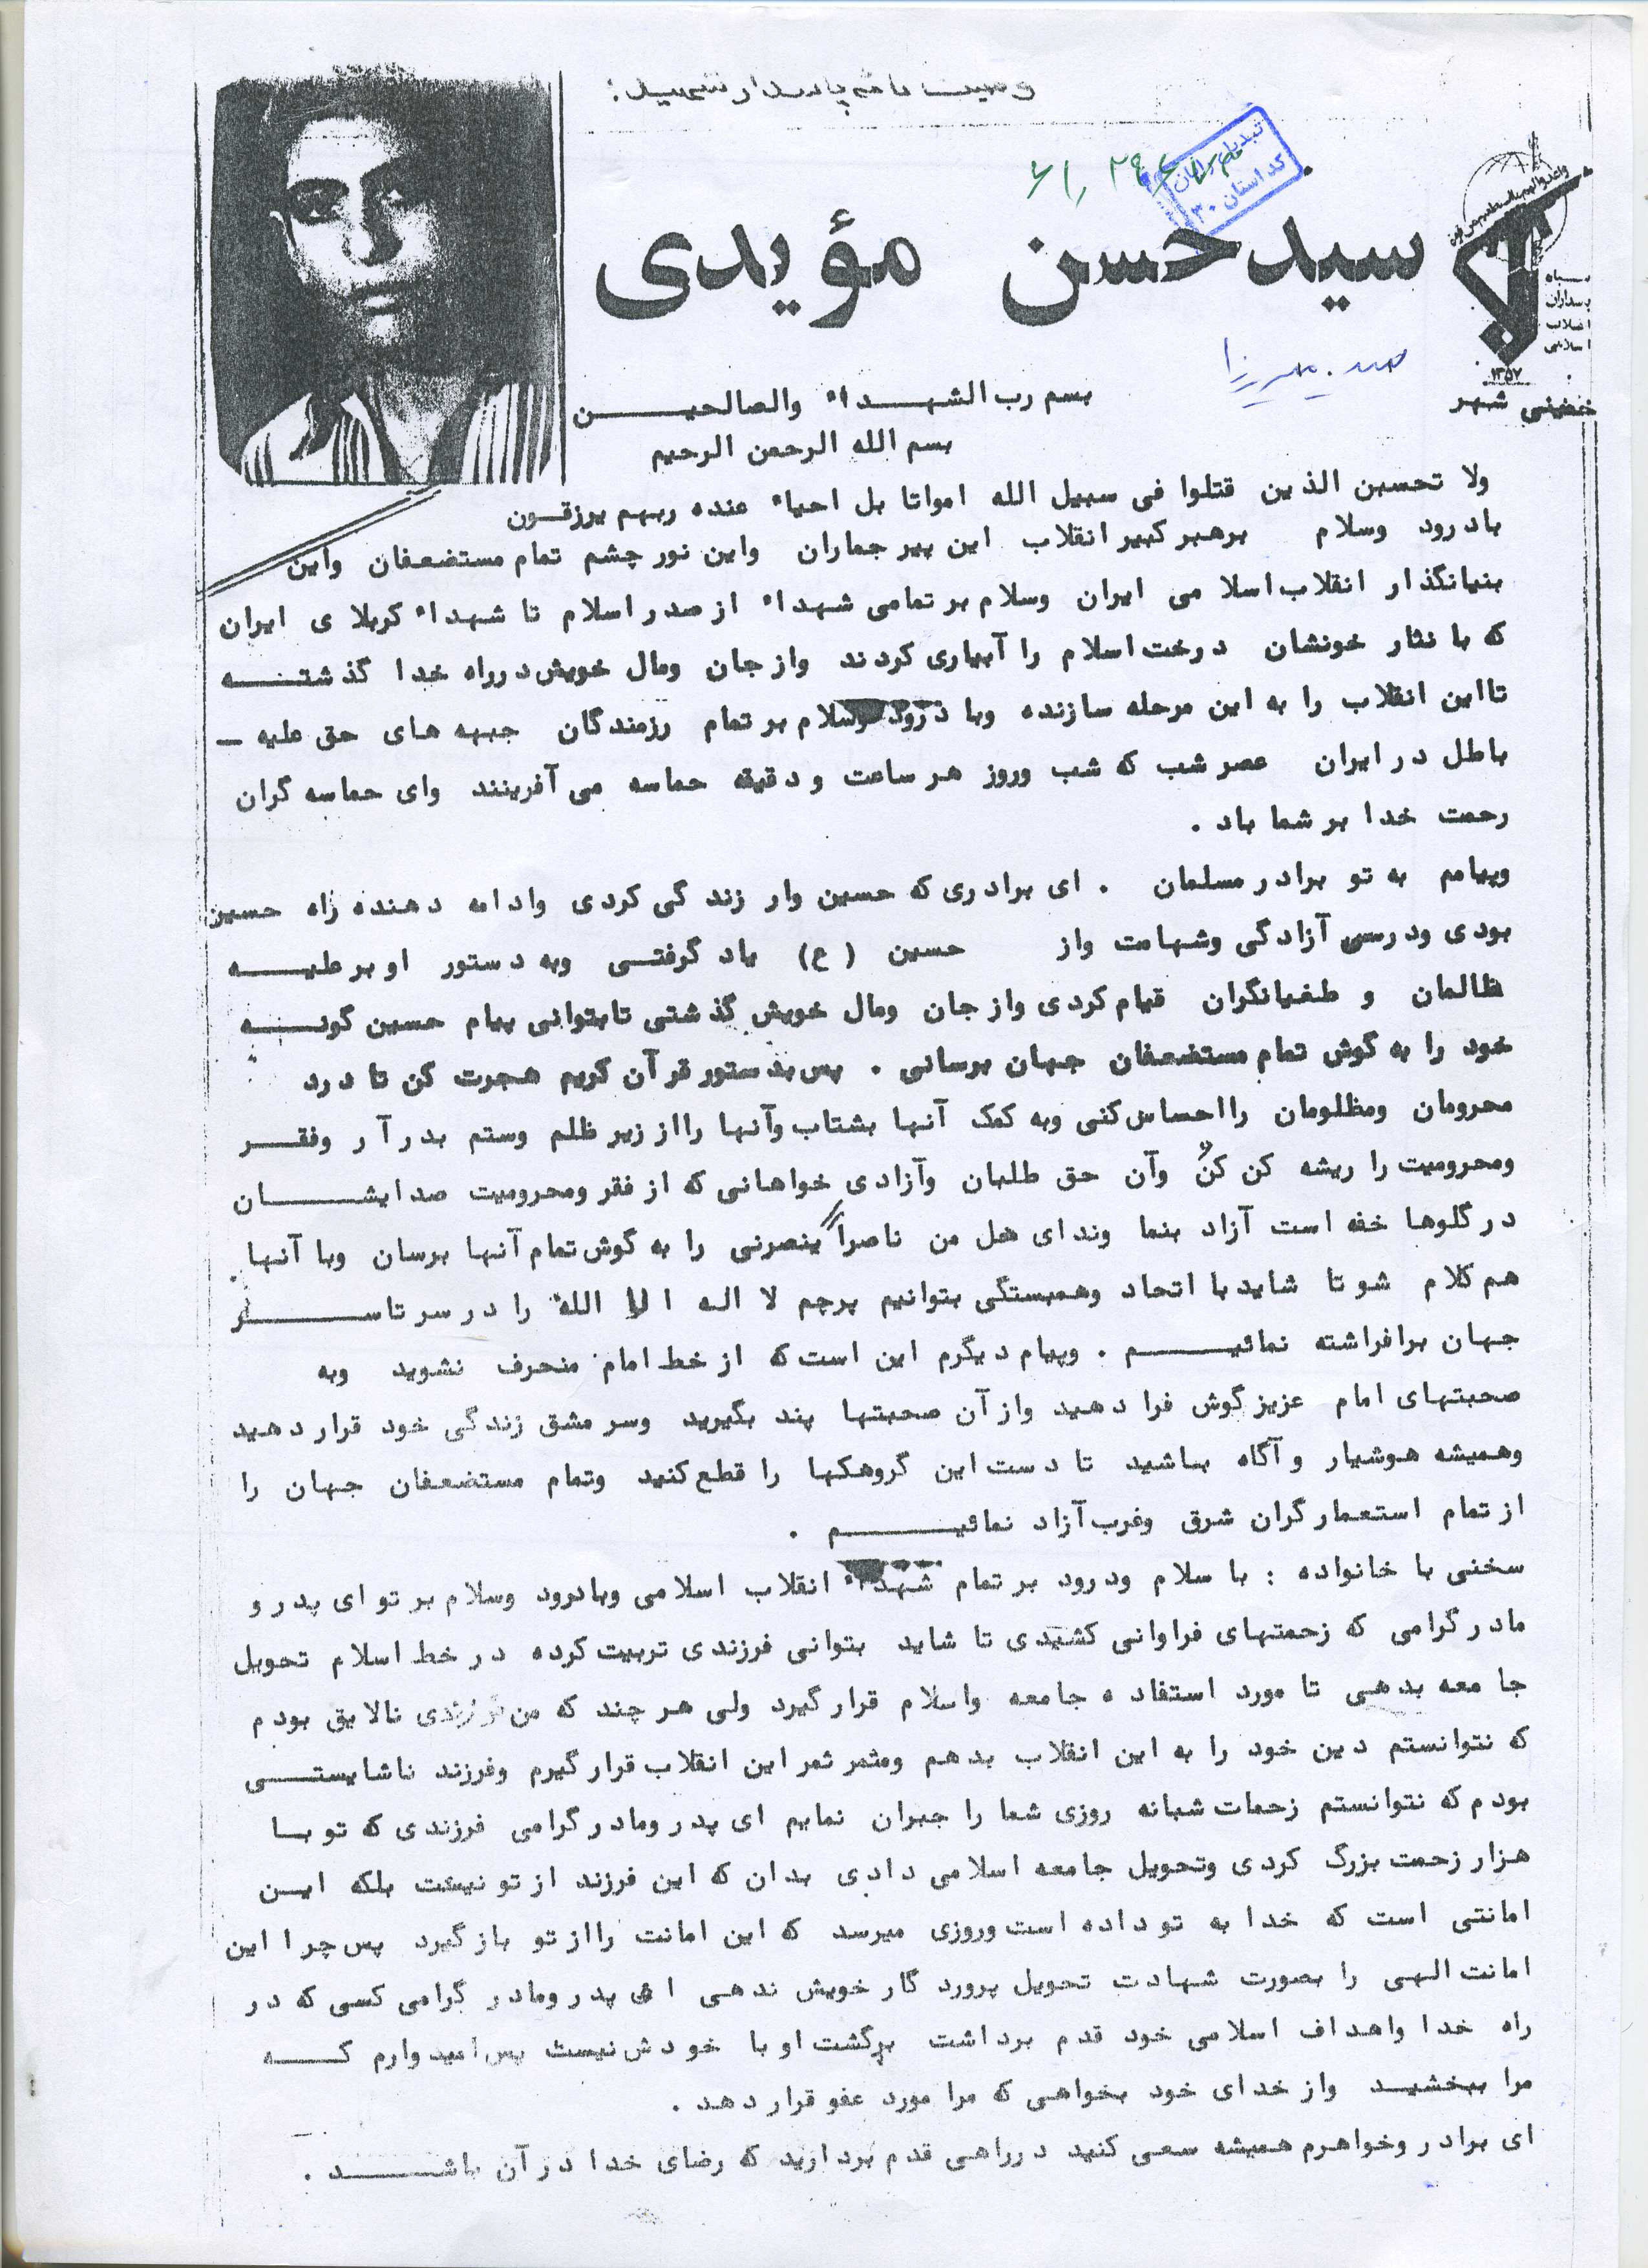 وصیت نامه پاسدار شهید:
تبدیل رایان
کد استان ۳۰
سید حسن مؤیدی
سپاه
پاسداران
انقلاب
اسلامی
۱۳۵۷
خمینی شهر
بسم رب الشهداء والصالحین
بسم الله الرحمن الرحیم
ولا تحسبن الذین قتلوا فی سبیل الله امواتا بل احیاء عنده ربهم یرزقون
بادرود وسلام برهبر کبیر انقلاب این پیر جماران واین نور چشم تمام مستضعفان واین
بنیانگذار انقلاب اسلامی ایران وسلام بر تمامی شهداء از صدر اسلام تا شهداء کربلای ایران
که با نثار خونشان درخت اسلام را آبیاری کردند واز جان ومال خویش درراه خدا گذشته
تااین انقلاب را به این مرحله سازنده وبا درود وسلام بر تمام رزمندگان جبهه های حق علیه –
باطل در ایران عصر شب که شب وروز هر ساعت و دقیقه حماسه می آفرینند وای حماسه گران
رحمت خدا بر شما باد .
وپیامم به تو برادر مسلمان . ای برادری که حسین وار زندگی کردی وادامه دهنده راه حسین
بودی ودرس آزادگی وشهامت واز حسین (ع) یاد گرفتی وبه دستور او بر علیه
ظالمان و طغیانگران قیام کردی واز جان ومال خویش گذشتی تابتوانی پیام حسین گونه
خود را به گوش تمام مستضعفان جهان برسانی . پس بدستور قرآن کریم هجرت کن تا درد
محرومان ومظلومان رااحساس کنی وبه کمک آنها بشتاب وآنها رااز زیر ظلم وستم بدر آر وفقر
ومحرومیت را ریشه کن کن وآن حق طلبان وآزادی خواهانی که از فقر ومحرومیت صدایشان
در گلوها خفه است آزاد بنما وندای هل من ناصراً ینصرنی را به گوش تمام آنها برسان وبا آنها
هم کلام شو تا شاید با اتحاد وهمبستگی بتوانیم پرچم لا اله الا الله را در سرتاسر
جهان برافراشته نمائیم . وپیام دیگرم این است که از خط امام منحرف نشوید وبه
صحبتهای امام عزیز گوش فرا دهید واز آن صحبتها پند بگیرید وسر مشق زندگی خود قرار دهید
وهمیشه هوشیار و آگاه باشید تا دست این گروهکها را قطع کنید وتمام مستضعفان جهان را
از تمام استعمارگران شرق وغرب آزاد نمائیم .
سخنی با خانواده : با سلام ودرود بر تمام شهداء انقلاب اسلامی وبادرود وسلام بر تو ای پدر و
مادر گرامی که زحمتهای فراوانی کشیدی تا شاید بتوانی فرزندی تربیت کرده در خط اسلام تحویل
جامعه بدهی تا مورد استفاده جامعه واسلام قرار گیرد ولی هر چند که من فرزندی نالایق بودم
که نتوانستم دین خود را به این انقلاب بدهم ومثمر ثمر این انقلاب قرار گیرم وفرزند ناشایستی
بودم که نتوانستم زحمات شبانه روزی شما را جبران نمایم ای پدر ومادر گرامی فرزندی که تو با
هزار زحمت بزرگ کردی وتحویل جامعه اسلامی دادی بدان که این فرزند از تو نیست بلکه این
امانتی است که خدا به تو داده است وروزی میرسد که این امانت رااز تو باز گیرد پس چرا این
امانت الهی را بصورت شهادت تحویل پرورد گار خویش ندهی ای پدر ومادر گرامی کسی که در
راه خدا واهداف اسلامی خود قدم برداشت برگشت او با خودش نیست پس امیدوارم که
مرا ببخشید واز خدای خود بخواهی که مرا مورد عفو قرار دهد .
ای برادر وخواهرم همیشه سعی کنید درراهی قدم بردارید که رضای خدا در آن باشد .